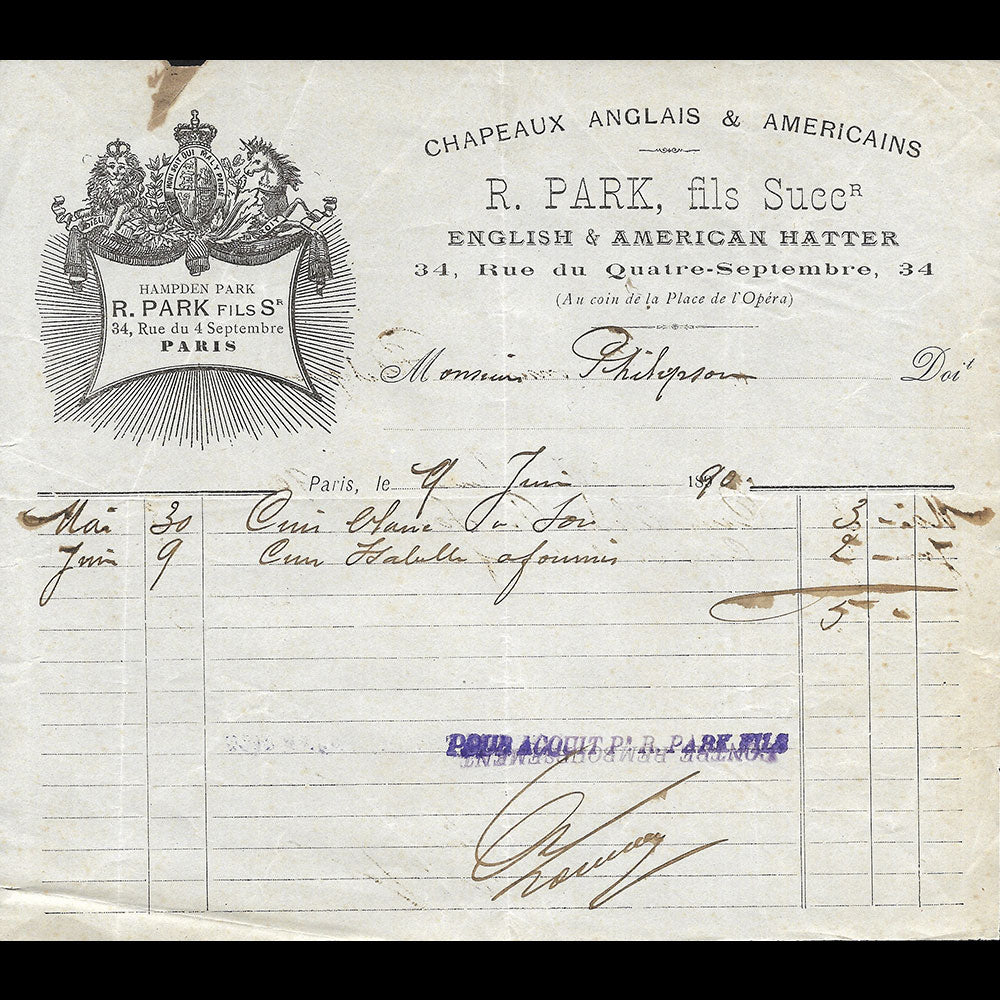 CHAPEAUX ANGLAIS & AMERICAINS
R. PARK, fils SuccR
ENGLISH & AMERICAN HATTER
34, Rue du Quatre-Septembre, 34
(Au coin de la Place de l'Opéra)
HONI SOIT QUI MAL Y PENSE
DIEU
HAMPDEN PARK
R. PARK FILS SR
34, Rue du 4 Septembre
PARIS
Monsieur Philipson Doit
Paris, le 9 Juin 1890
Mai 30 Cuir blanc 3 -
Juin 9 Cuir Isabelle 2 -
5 -
POUR ACQUIT Pr R. PARK FILS
CONTRE REMBOURSEMENT